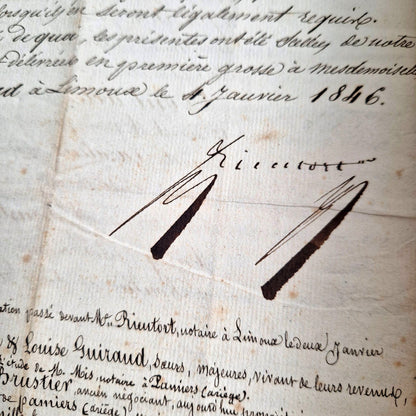 lorsqu'ils en seront légalement requis.
de quoi, les présentes ont été scellées de notre
Délivrées en première grosse à mesdemoiselles
à Limoux le 4 Janvier 1846.
Rieutort
passé devant Me. Rieutort, notaire à Limoux le deux Janvier
& Louise Guiraud, sœurs, majeures, vivant de leurs revenus,
étude de M. Mis, notaire à Pamiers (Ariège).
Brustier, ancien négociant, aujourd'hui
de pamiers (Ariège)